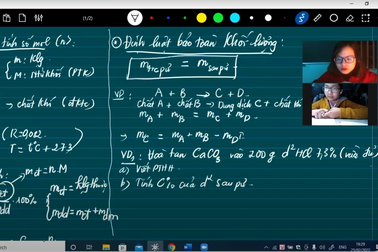 tính số mol (n):
m: Klg
M: NTKhối (PTK)
→ chất khí (đktc)
(R = 0,082
T = t°C + 273
mct = n.M
.100%
mct = klg
mdd = mct + mdm
⊛ Định luật bảo toàn khối lượng:
mtrcpứ = msau pứ
VD: A + B → C + D.
chất A + chất B → Dung dịch C + chất khí
mA + mB = mC + mD.
→ mC = mA + mB - mD↑.
VD1: Hoà tan CaCO3 vào 200g d² HCl 7,3% (vừa đủ)
a) Viết PTHH
b) Tính C% của d² sau pứ.